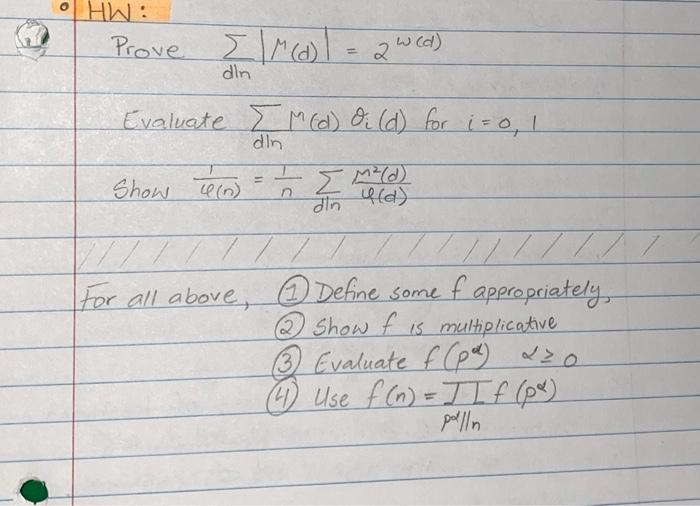 • HW:
Prove ∑ |μ(d)| = 2^ω(d)
d|n
Evaluate ∑ μ(d) θi(d) for i = 0, 1
d|n
Show 1/φ(n) = 1/n ∑ μ²(d)/φ(d)
d|n
For all above, ① Define some f appropriately,
② Show f is multiplicative
③ Evaluate f(p^α) α ≥ 0
④ Use f(n) = ∏ f(p^α)
p^α||n